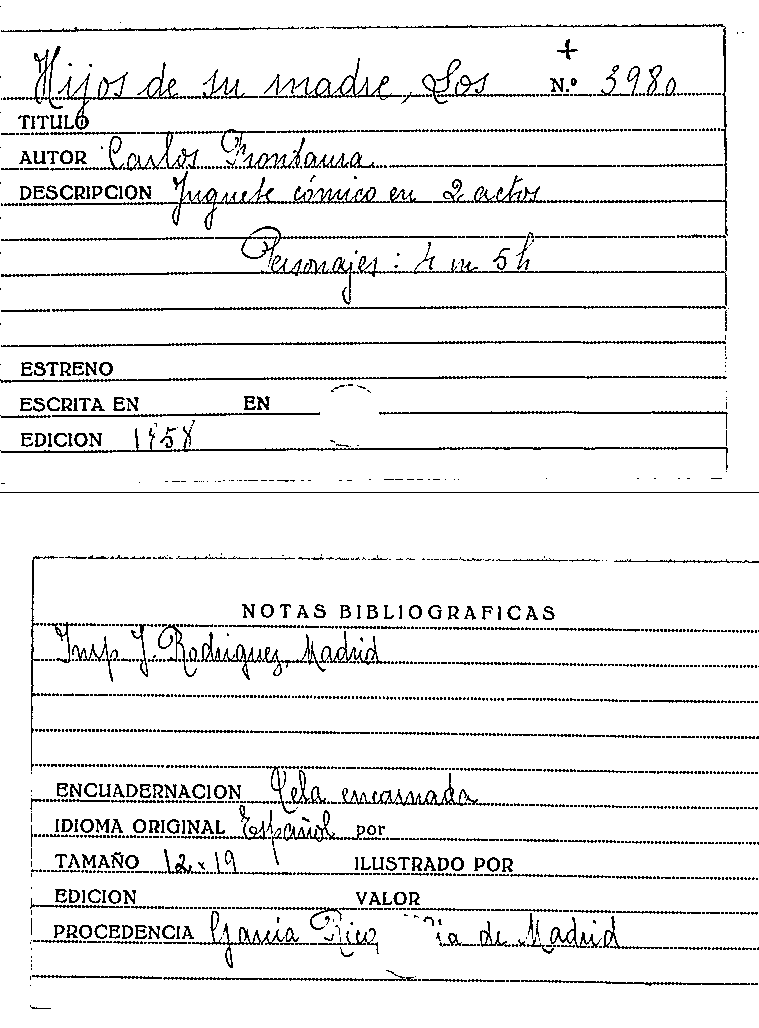 +
Hijos de su madre, Los N.º 3980
TITULO
AUTOR Carlos Frontaura
DESCRIPCION Juguete cómico en 2 actos
Personajes: 4 m 5 h
ESTRENO
ESCRITA EN EN
EDICION 1858
NOTAS BIBLIOGRAFICAS
Imp J. Rodriguez, Madrid
ENCUADERNACION Tela encarnada
IDIOMA ORIGINAL Español por
TAMAÑO 12 x 19 ILUSTRADO POR
EDICION VALOR
PROCEDENCIA García Rico, de Madrid